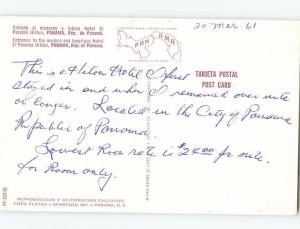 Entrada al moderno y lujoso Hotel
El Panamá Hilton, PANAMA, Rep. de Panamá.
Entrance to the modern and luxurious Hotel
El Panama Hilton, PANAMA, Rep. de Panama.
PANAMA
20 Mar. 61
TARJETA POSTAL
POST CARD
This is a Hilton Hotel I first
stayed in and when I remained over nite
or longer. Located in the City of Panama
Republic of Panama.
Lowest Room rate is $24.00 pr nite.
for Room only.
REPRODUCCION Y DISTRIBUCION EXCLUSIVA
FOTO FLATAU - APARTADO
PANAMA, R. P.